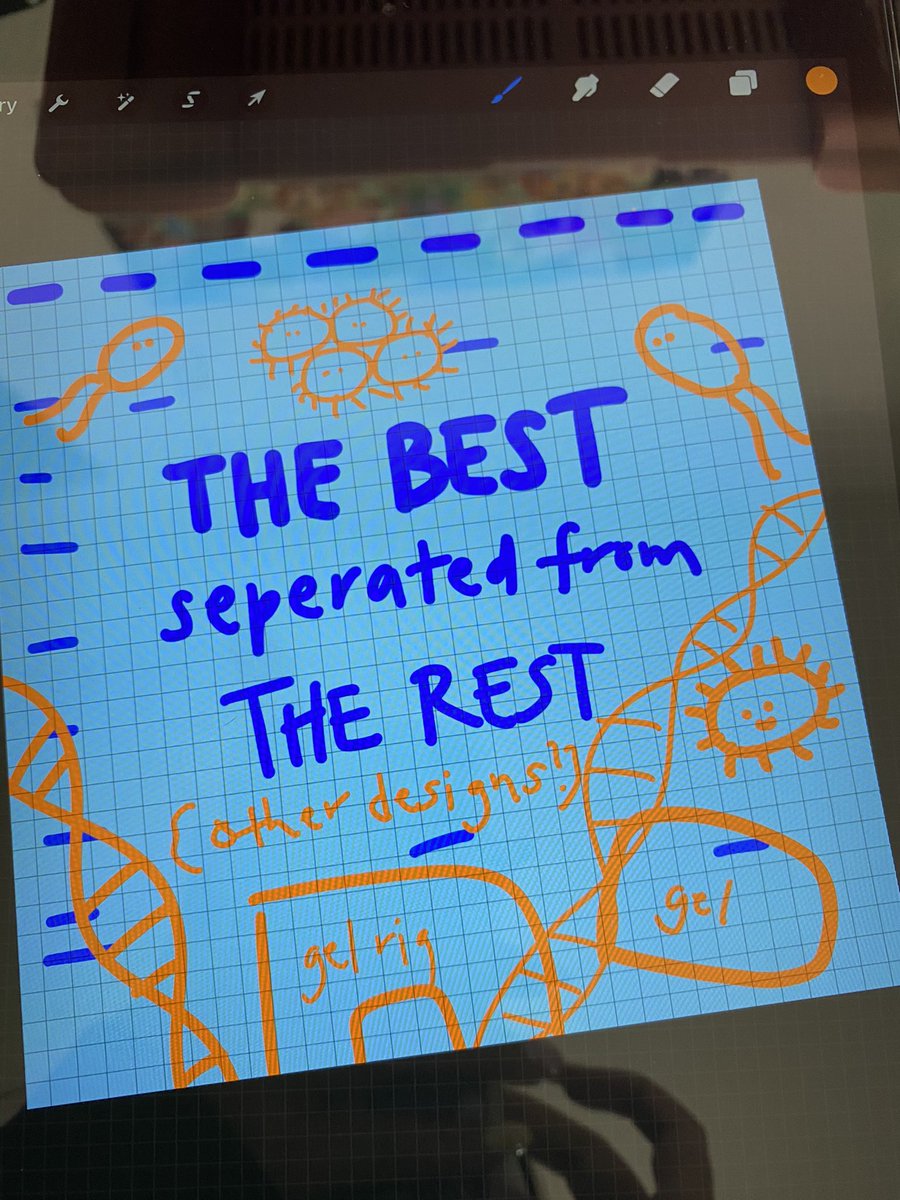 ry
THE BEST
seperated from
THE REST
(other designs!?)
gel rig
gel